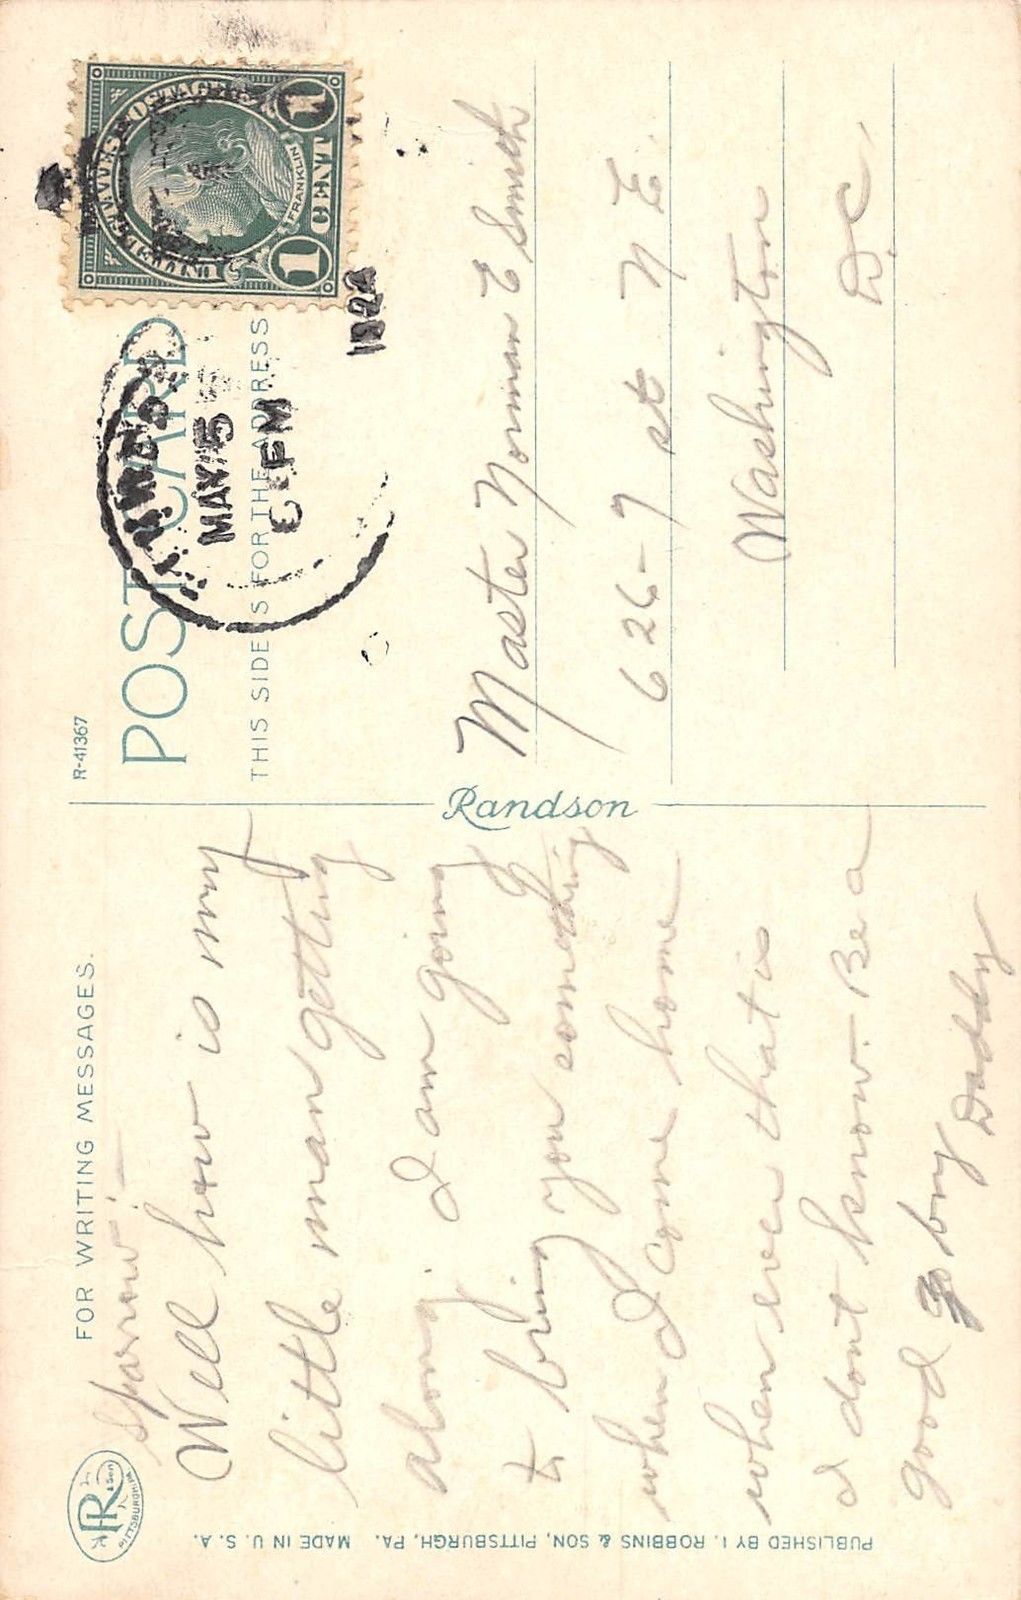 FOR WRITING MESSAGES.
Sparrow:—
Well how is my
little man getting
along. I am going
to bring you something
when I come home
when ever that is
I dont know. Be a
good boy
Daddy
Randson
R-41367
POST CARD
THIS SIDE IS FOR THE ADDRESS
UNITED STATES POSTAGE
FRANKLIN
1 CENT 1
MAY 15
PM
192
Master Norman E Smith
626-7 st N E
Washington
D.C.
R
& Son
PITTSBURGH PA.
PUBLISHED BY I. ROBBINS & SON, PITTSBURGH, PA. MADE IN U. S. A.